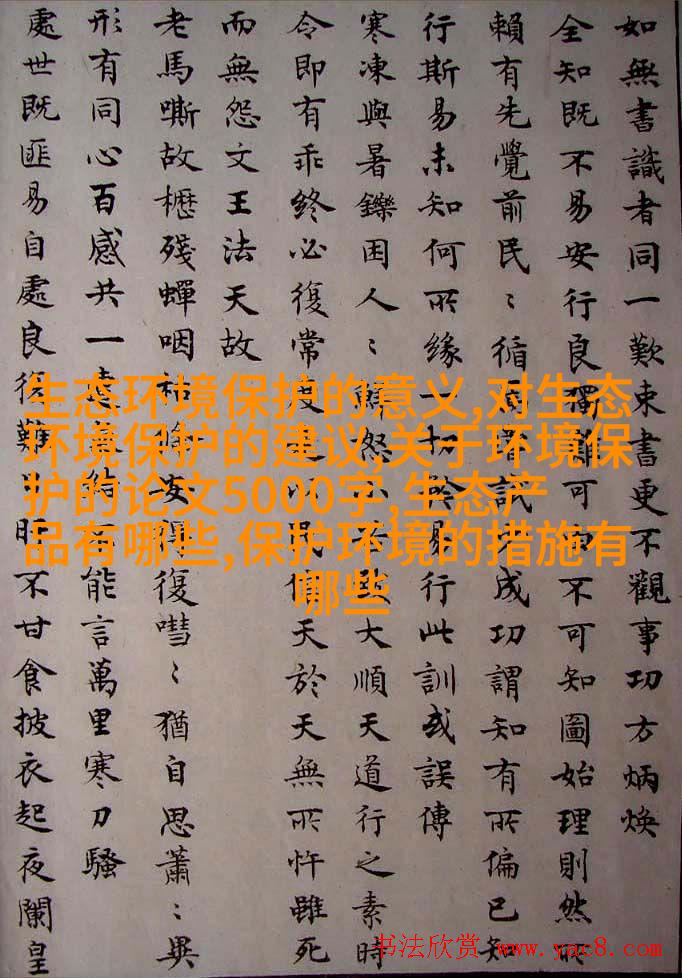 如無書識者同一歎束書更不觀事功方炳煥
全知既不易安行良獨難可不可知圖始理則然所
賴有先覺前民〻循習試成功謂知有所偏已知
行斯易未知何所緣一切易行此訓或誤傳
寒凍與暑鑠困人〻怨大順天道行之素時
令即有乖終必復常度民天於天無所忤雖死
而無怨文王法天故
老馬嘶故櫪殘蟬咽和復嘒〻猶自思蕭〻異
形有同心百感共一能言萬里寒刀騷
處世既匪易自處良復難時不甘食披衣起夜闌皇
生态环境保护的意义,对生态
环境保护的建议,关于环境保
护的论文5000字,生态产
品有哪些,保护环境的措施有
哪些
书法欣赏 www.yac8.com